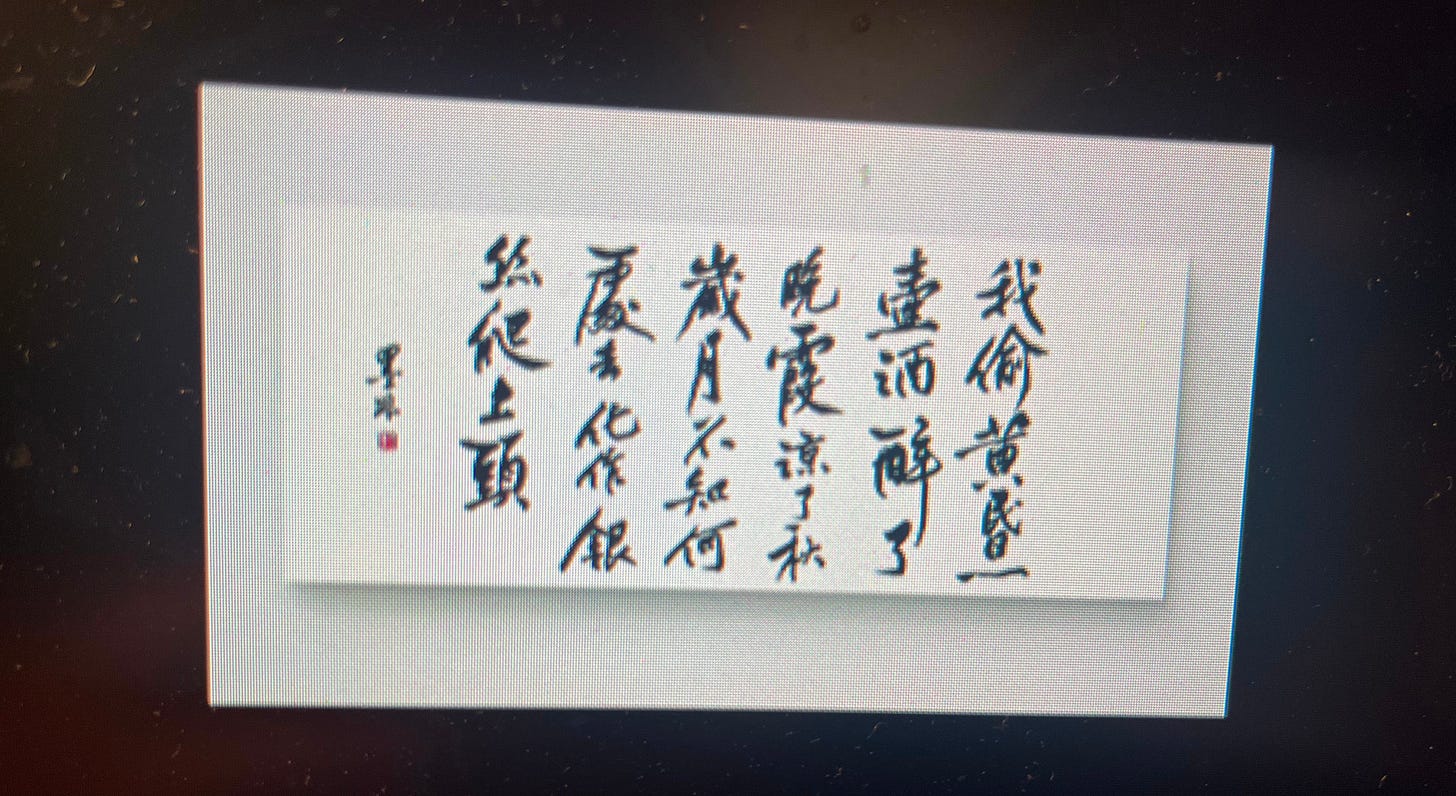 我偷黃昏一
壺酒醉了
晚霞涼了秋
歲月不知何
處去化作銀
絲爬上頭